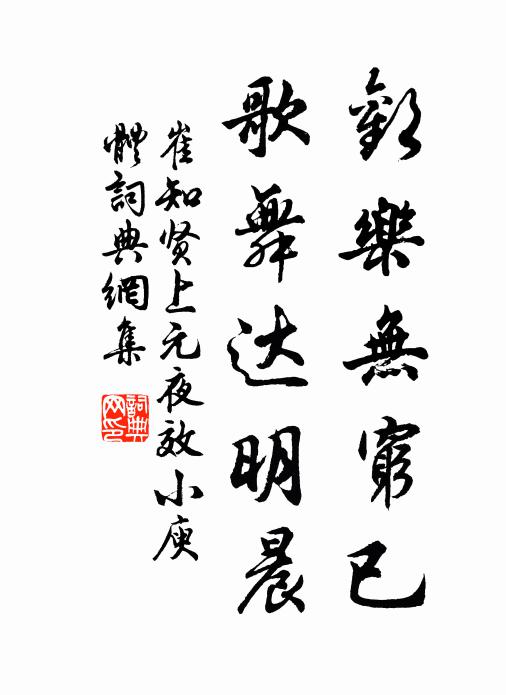 歡樂無窮已
歌舞达明晨
崔知贤上元夜效小庾
體詞典網集
詞典
网印